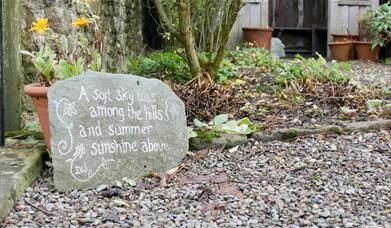 A soft sky was
among the hills
and summer
sunshine above